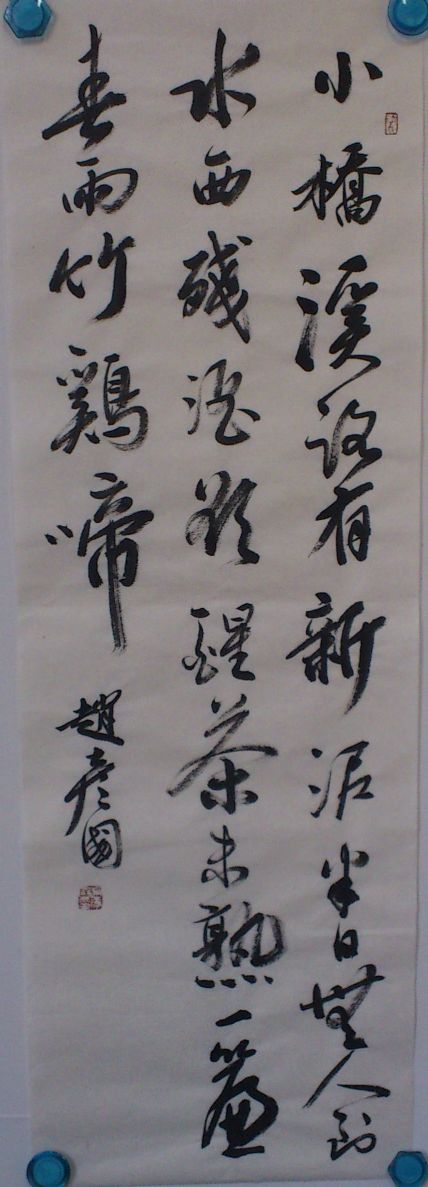 小橋溪路有新泥半日無人到
水西殘酒欲醒茶未熟一簾
春雨竹鷄啼
趙彦國